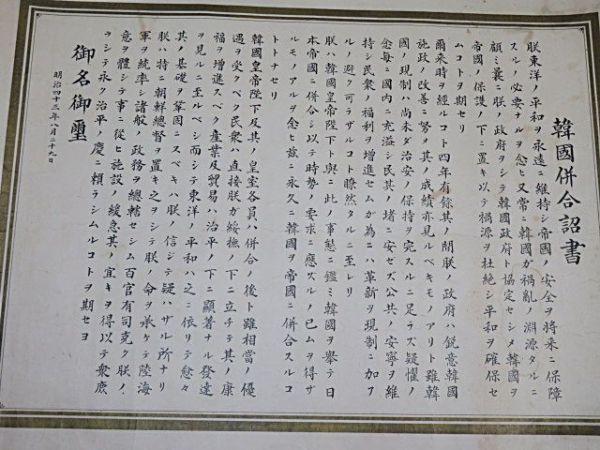 韓國併合詔書
朕東洋ノ平和ヲ永遠ニ維持シ帝國ノ安全ヲ將來ニ保障
スルノ必要ナルヲ念ヒ又常ニ韓國カ禍亂ノ淵源タルニ
顧ミ曩ニ朕ノ政府ヲシテ韓國政府ト協定セシメ韓國ヲ
帝國ノ保護ノ下ニ置キ以テ禍源ヲ杜絶シ平和ヲ確保セ
ムコトヲ期セリ
爾来時ヲ經ルコト四年有餘其ノ間朕ノ政府ハ鋭意韓國
施政ノ改善ニ努メ其ノ成績亦見ルベキモノアリト雖韓
國ノ現制ハ尚未ダ治安ノ保持ヲ完スルニ足ラズ疑懼ノ
念毎ニ國内ニ充溢シ民其ノ堵ニ安セズ公共ノ安寧ヲ維
持シ民衆ノ福利ヲ增進セムガ為ニハ革新ヲ現制ニ加フ
ルノ避ク可ラザルコト瞭然タルニ至レリ
朕ハ韓國皇帝陛下ト與ニ此ノ事態ニ鑑ミ韓國ヲ擧テ日
本帝國ニ併合シ以テ時勢ノ要求ニ應ズルノ已ムヲ得ザ
ルモノアルヲ念ヒ茲ニ永久ニ韓國ヲ帝國ニ併合スルコ
トトナセリ
韓國皇帝陛下及其ノ皇室各員ハ併合ノ後ト雖相當ノ優
遇ヲ受クベク民衆ハ直接朕ガ綏撫ノ下ニ立チテ其ノ康
福ヲ增進スベク産業及貿易ハ治平ノ下ニ顯著ナル發達
ヲ見ルニ至ルベシ而シテ東洋ノ平和ハ之ニ依リテ愈々
其ノ基礎ヲ鞏固ニスベキハ朕ノ信ジテ疑ハザル所ナリ
朕ハ特ニ朝鮮總督ヲ置キ之ヲシテ朕ノ命ヲ承ケテ陸海
軍ヲ統率シ諸般ノ政務ヲ總轄セシム百官有司克ク朕ノ
意ヲ體シテ事ニ從ヒ施設ノ緩急其ノ宜キヲ得以テ衆庶
ヲシテ永ク治平ノ慶ニ頼ラシムルコトヲ期セヨ
御名御璽
明治四十三年八月二十九日